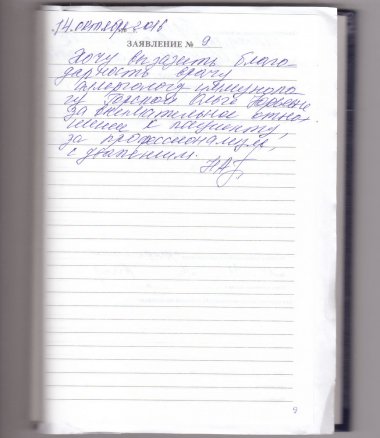 14 октября 2016
ЗАЯВЛЕНИЕ № 9
Хочу выразить благо-
дарность врачу
аллергологу иммуноло
гу Горской Ольге
за внимательное отно-
шение к пациенту,
за профессионализм,
с уважением.
9